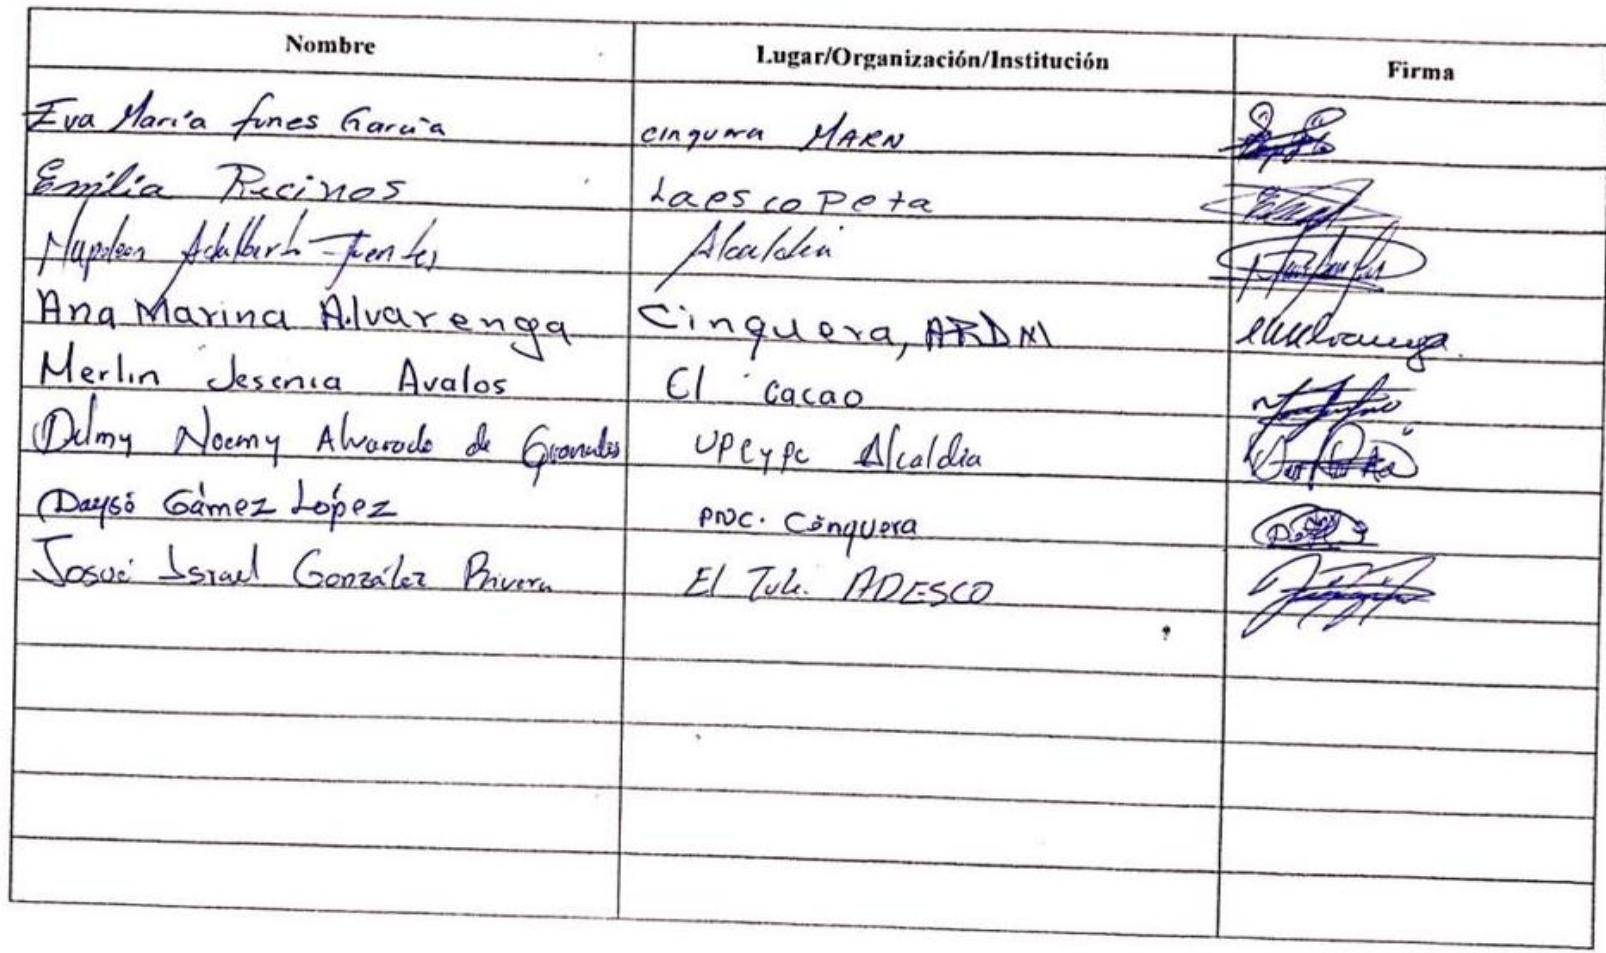 Nombre Lugar/Organización/Institución Firma
Eva María funes García cinquera MARN
Emilia Recinos La escopeta
Napoleon Adalberto Fuentes Alcaldia
Ana Marina Alvarenga Cinquera, ARDM
Merlin Jesenia Avalos El cacao
Delmy Noemy Alvarado de UPCYPC Alcaldia
Daysi Gámez López PNC. Cinquera
Josué Israel González Rivera El Tule. ADESCO